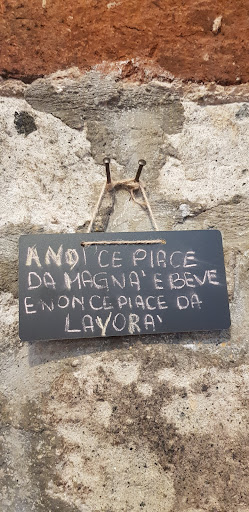 A NOI CE PIACE
DA MAGNA' E BEVE
E NON CE PIACE DA
LAVORA'